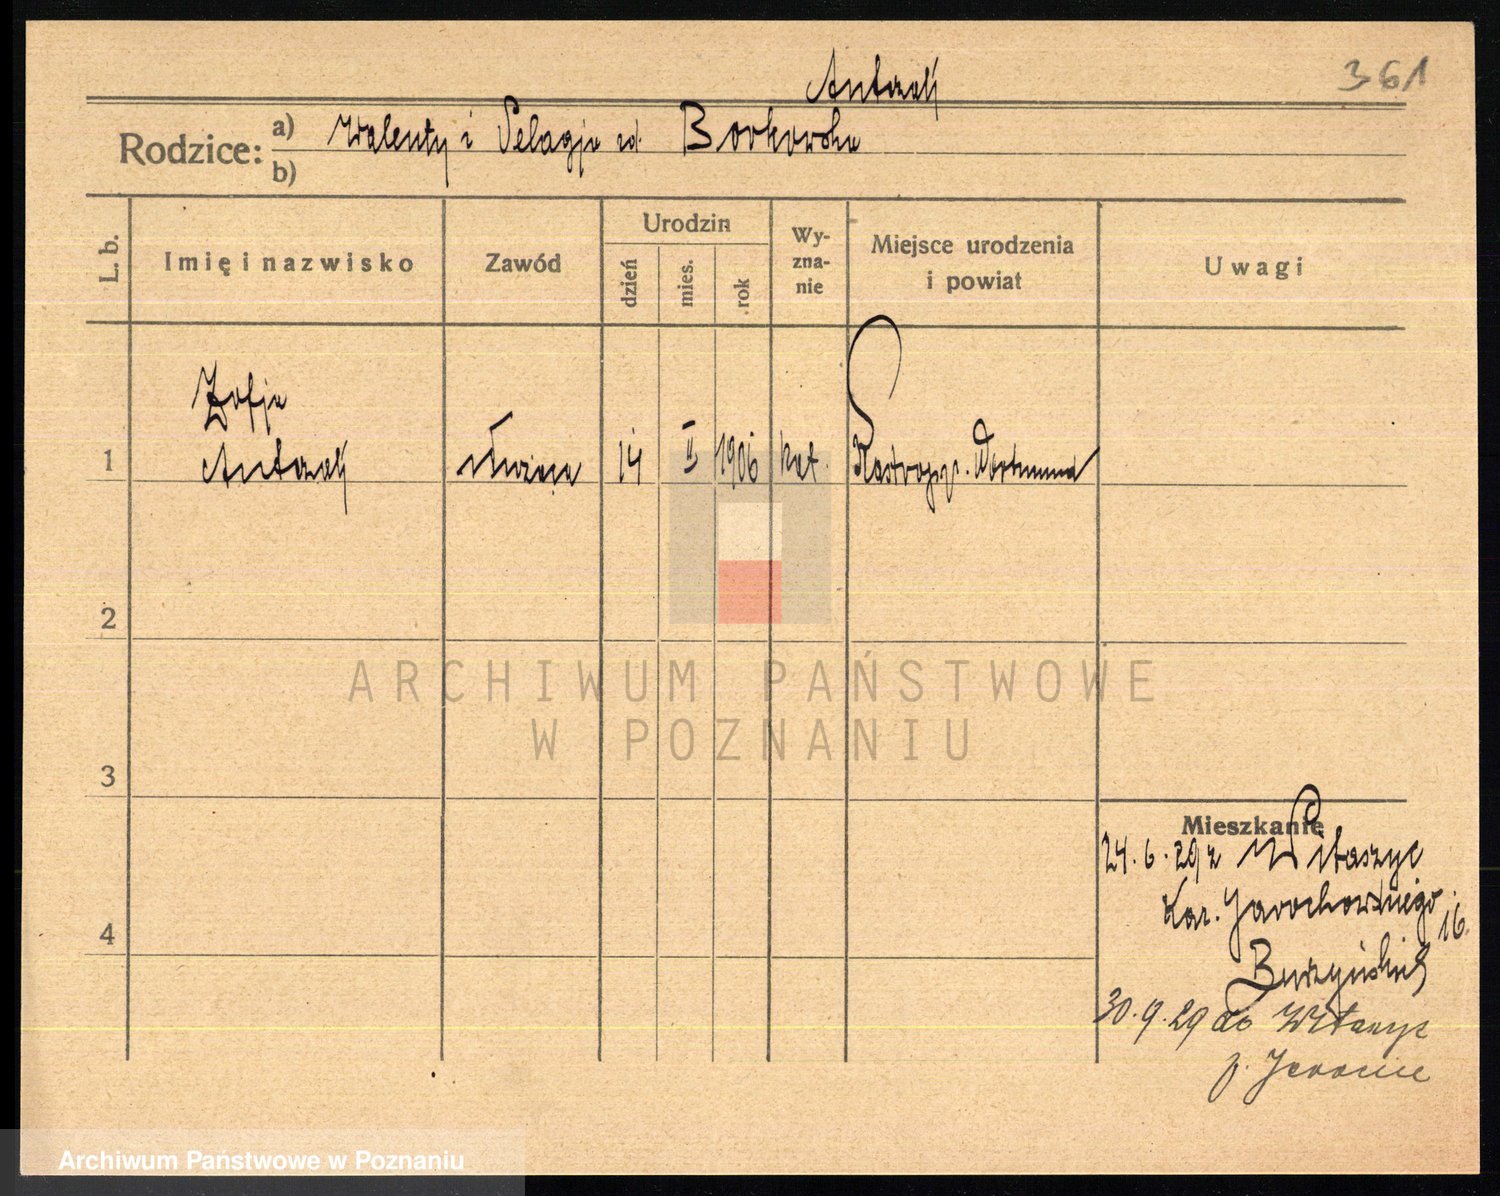 Antczak
361
Rodzice: a) Walenty i Pelagja zd. Borkowska
b)
L. b.
Imię i nazwisko
Zawód
Urodzin
dzień
mies.
rok
Wy-
zna-
nie
Miejsce urodzenia
i powiat
Uwagi
Zofja
1 Antczak służąca 14 II 1906 kat. Kastrop p. Dortmund
2
3
4
Mieszkanie
24.6.29 z Witaszyc
Kar. Jarochowskiego 16.
30.9.29 do Witaszyc
p. Jarocin
ARCHIWUM PAŃSTWOWE
W POZNANIU
Archiwum Państwowe w Poznaniu